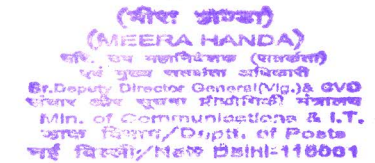 (मीरा हाण्डा)
(MEERA HANDA)
वरि. उप महानिदेशक (सतर्कता)
एवं मुख्य सतर्कता अधिकारी
Sr.Deputy Director General(Vig.)& CVO
संचार और सूचना प्रौद्योगिकी मंत्रालय
Min. of Communications & I.T.
डाक विभाग/Deptt. of Posts
नई दिल्ली/New Delhi-110001